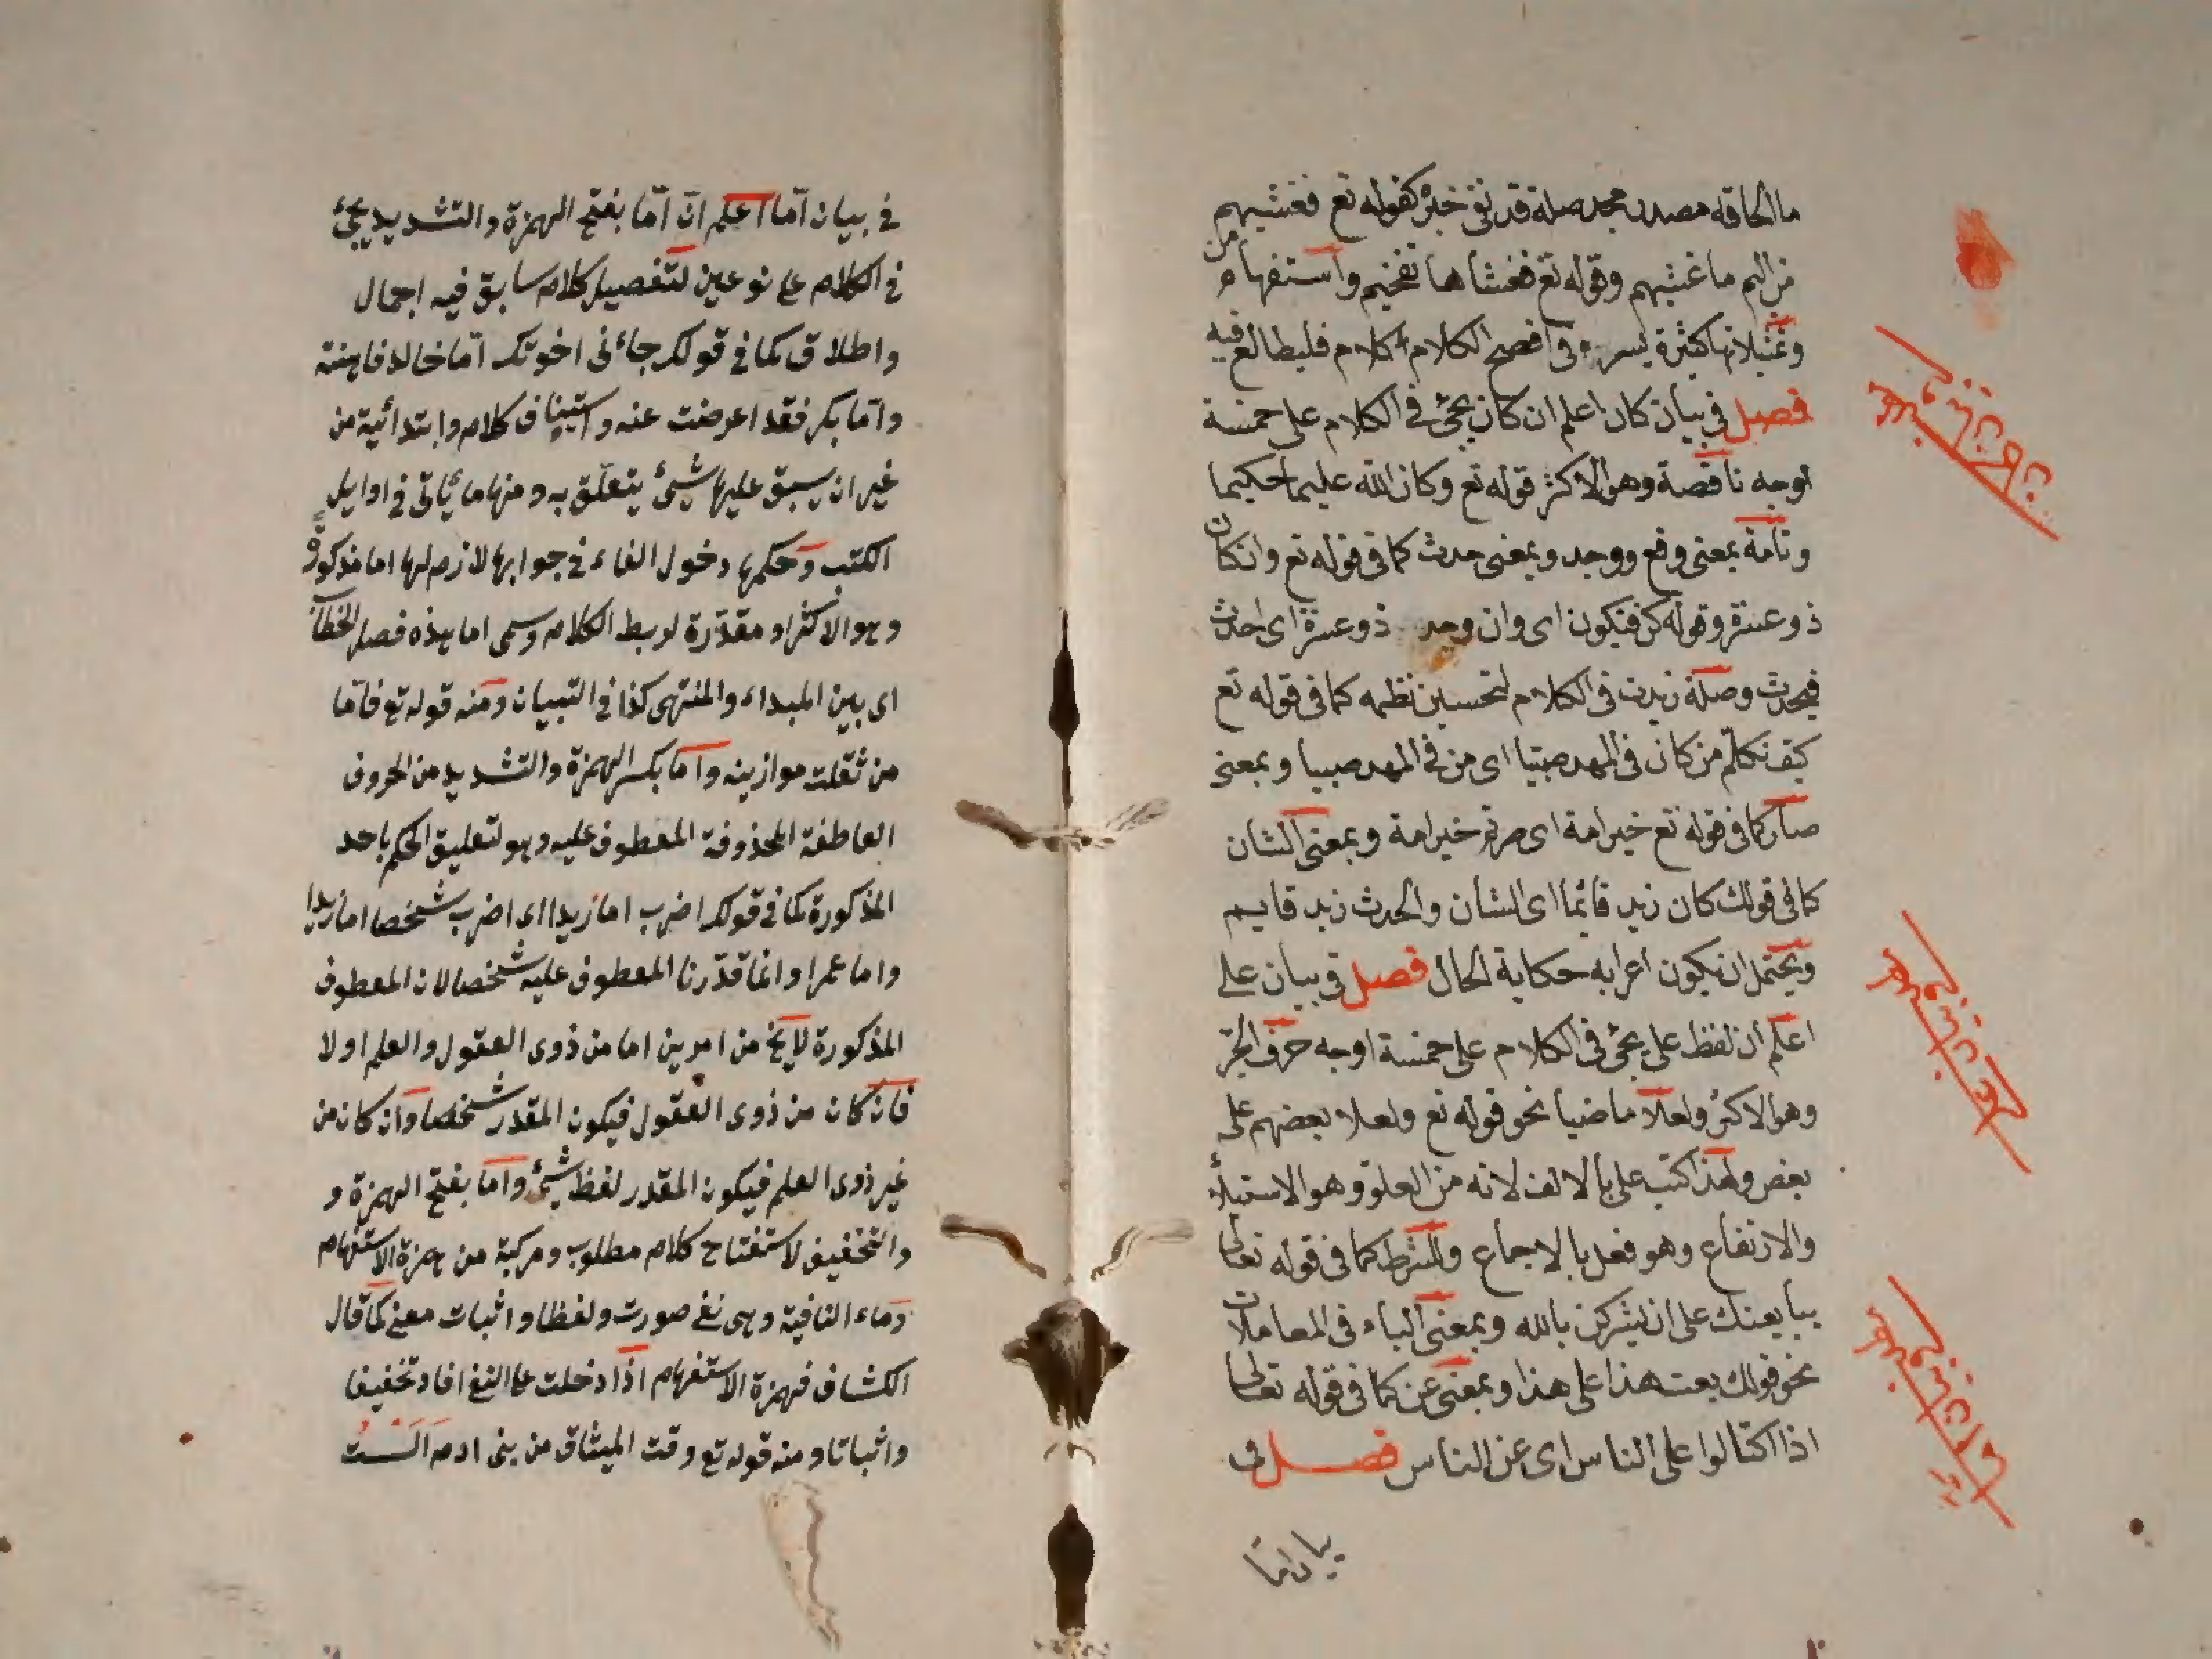 ما الحاقه مصدر مجد صلة قد تق خبر كقوله تع فغشيهم
من اليم ما غشيهم وقوله تع فغشاها تفخيم واستفهام من
وتمثيلاتها كثيرة يسر في افصح الكلام كلام فليطالع فيه
فصل في بيان كان اعلم ان كان يجئ في الكلام على خمسة
اوجه ناقصة وهو الاكثر قوله تع وكان الله عليما حكيما
وتامة بمعنى وقع ووجد وبمعنى حدث كما في قوله تع وان كان
ذو عسرة وقوله كن فيكون اى وان وجد ذو عسرة اى احدث
فيحدث وصلة زيدت في الكلام لتحسين نظمه كما في قوله تع
كيف نكلم من كان في المهد صبيا اى من في المهد صبيا وبمعنى
صار كما في قوله تع خير امة اى صرتم خير امة وبمعنى الشان
كما في قولك كان زيد قائما اى الشان والحدث زيد قايم
ويحتمل ان يكون اعرابه حكاية الحال فصل في بيان على
اعلم ان لفظ على يجئ في الكلام على خمسة اوجه حرف الجر
وهو الاكثر ولعلا ماضيا نحو قوله تع ولعلا بعضهم على
بعض ولهذا كتب على بالالف لانه من العلو وهو الاستيلاء
والارتفاع وهو فعل بالاجماع وللشرط كما في قوله تعالى
يبايعنك على ان لا يشركن بالله وبمعنى الباء في المعاملات
نحو قولك بعت هذا على هذا وبمعنى عن كما في قوله تعالى
اذا اكتالوا على الناس اى عن الناس فصل في
بيان اما
في بيان اما اعلم ان اما بفتح الهمزة والتشديد يجئ
في الكلام على نوعين لتفصيل كلام سابق فيه اجمال
واطلاق كما في قولك جاءنى اخوتك اما خالد فاهنته
واما بكر فقد اعرضت عنه واستيناف كلام وابتدائية من
غير ان يسبق عليها شئ يتعلق به ومنها ما يأتى في اوايل
الكتب وحكمها دخول الفاء في جوابها لازم لها اما مذكورة
وهو الاكثر او مقدّرة لربط الكلام وسمى اما هذه فصل الخطاب
اى بين المبداء والمنتهى كذا في التبيان ومنه قوله تع فاما
من ثقلت موازينه واما بكسر الهمزة والتشديد من الحروف
العاطفة المحذوفة المعطوف عليه وهو لتعليق الحكم باحد
المذكورة كما في قولك اضرب اما زيدا اى اضرب شخصا اما زيدا
واما عمرا وانما قدّرنا المعطوف عليه شخصا لان المعطوف
المذكورة لا يخ من امرين اما من ذوى العقول والعلم او لا
فان كان من ذوى العقول فيكون المقدر شخصا وان كان من
غير ذوى العلم فيكون المقدر لفظ شئ واما بفتح الهمزة و
والتخفيف لاستفتاح كلام مطلوب ومركبة من همزة الاستفهام
وماء النافية وهى نفى صورت ولفظا واثبات معنى كما قال
الكشاف فهمزة الاستفهام اذا دخلت على النفى افاد تخفيفا
واثباتا ومنه قوله تع وقت الميثاق من بنى ادم الست